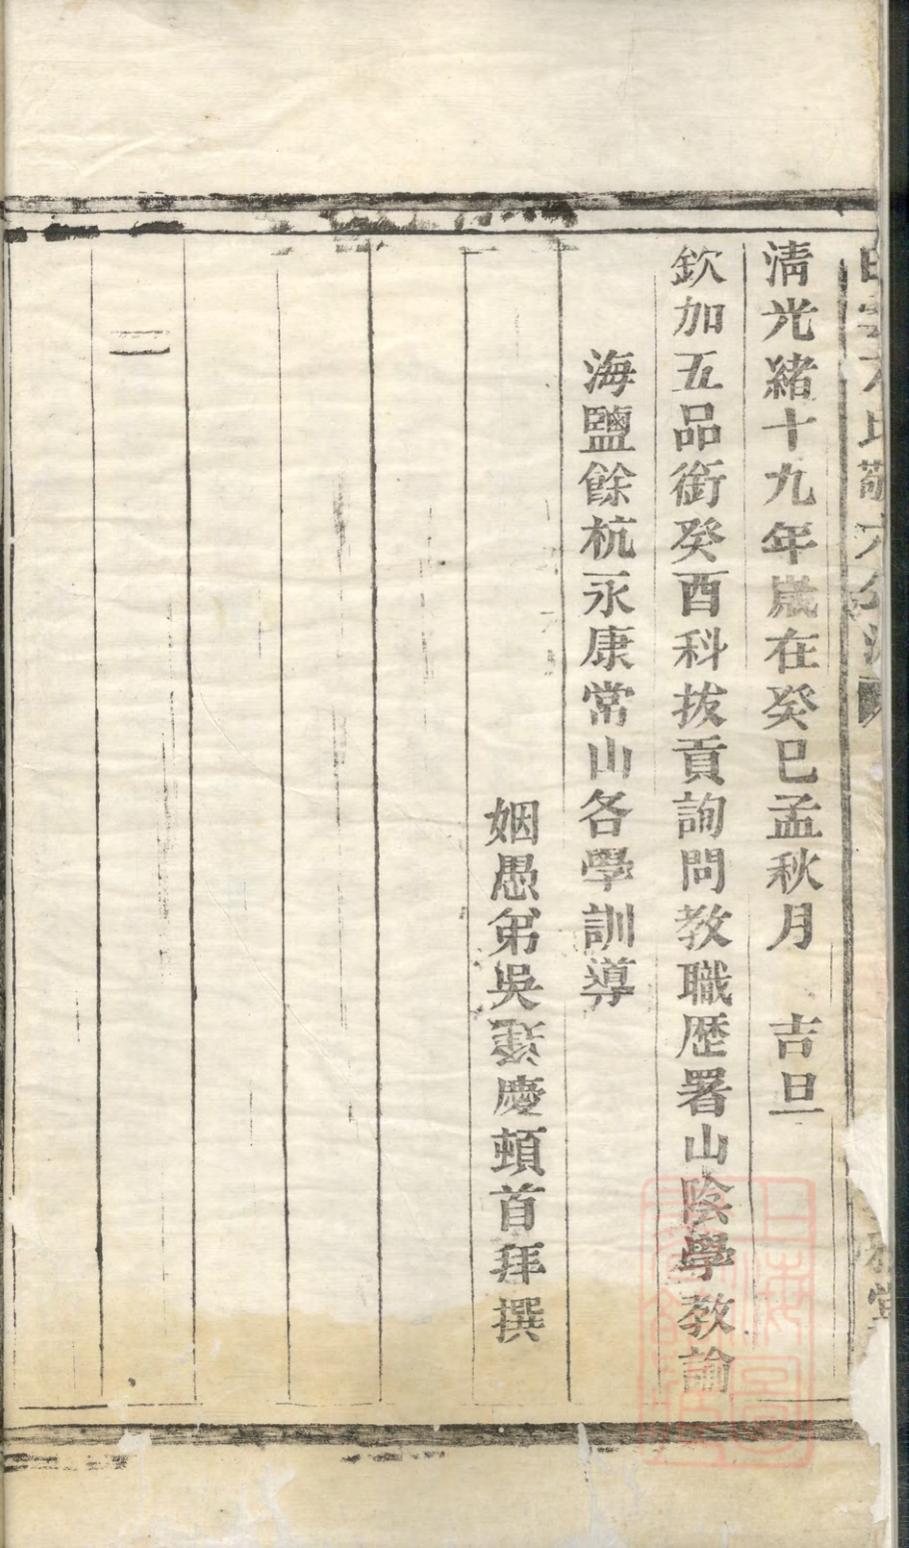 清光緒十九年歲在癸巳孟秋月 吉旦
欽加五品銜癸酉科拔貢詢問教職歷署山陰學教諭
海鹽餘杭永康常山各學訓導
姻愚弟吳 慶頓首拜撰
二